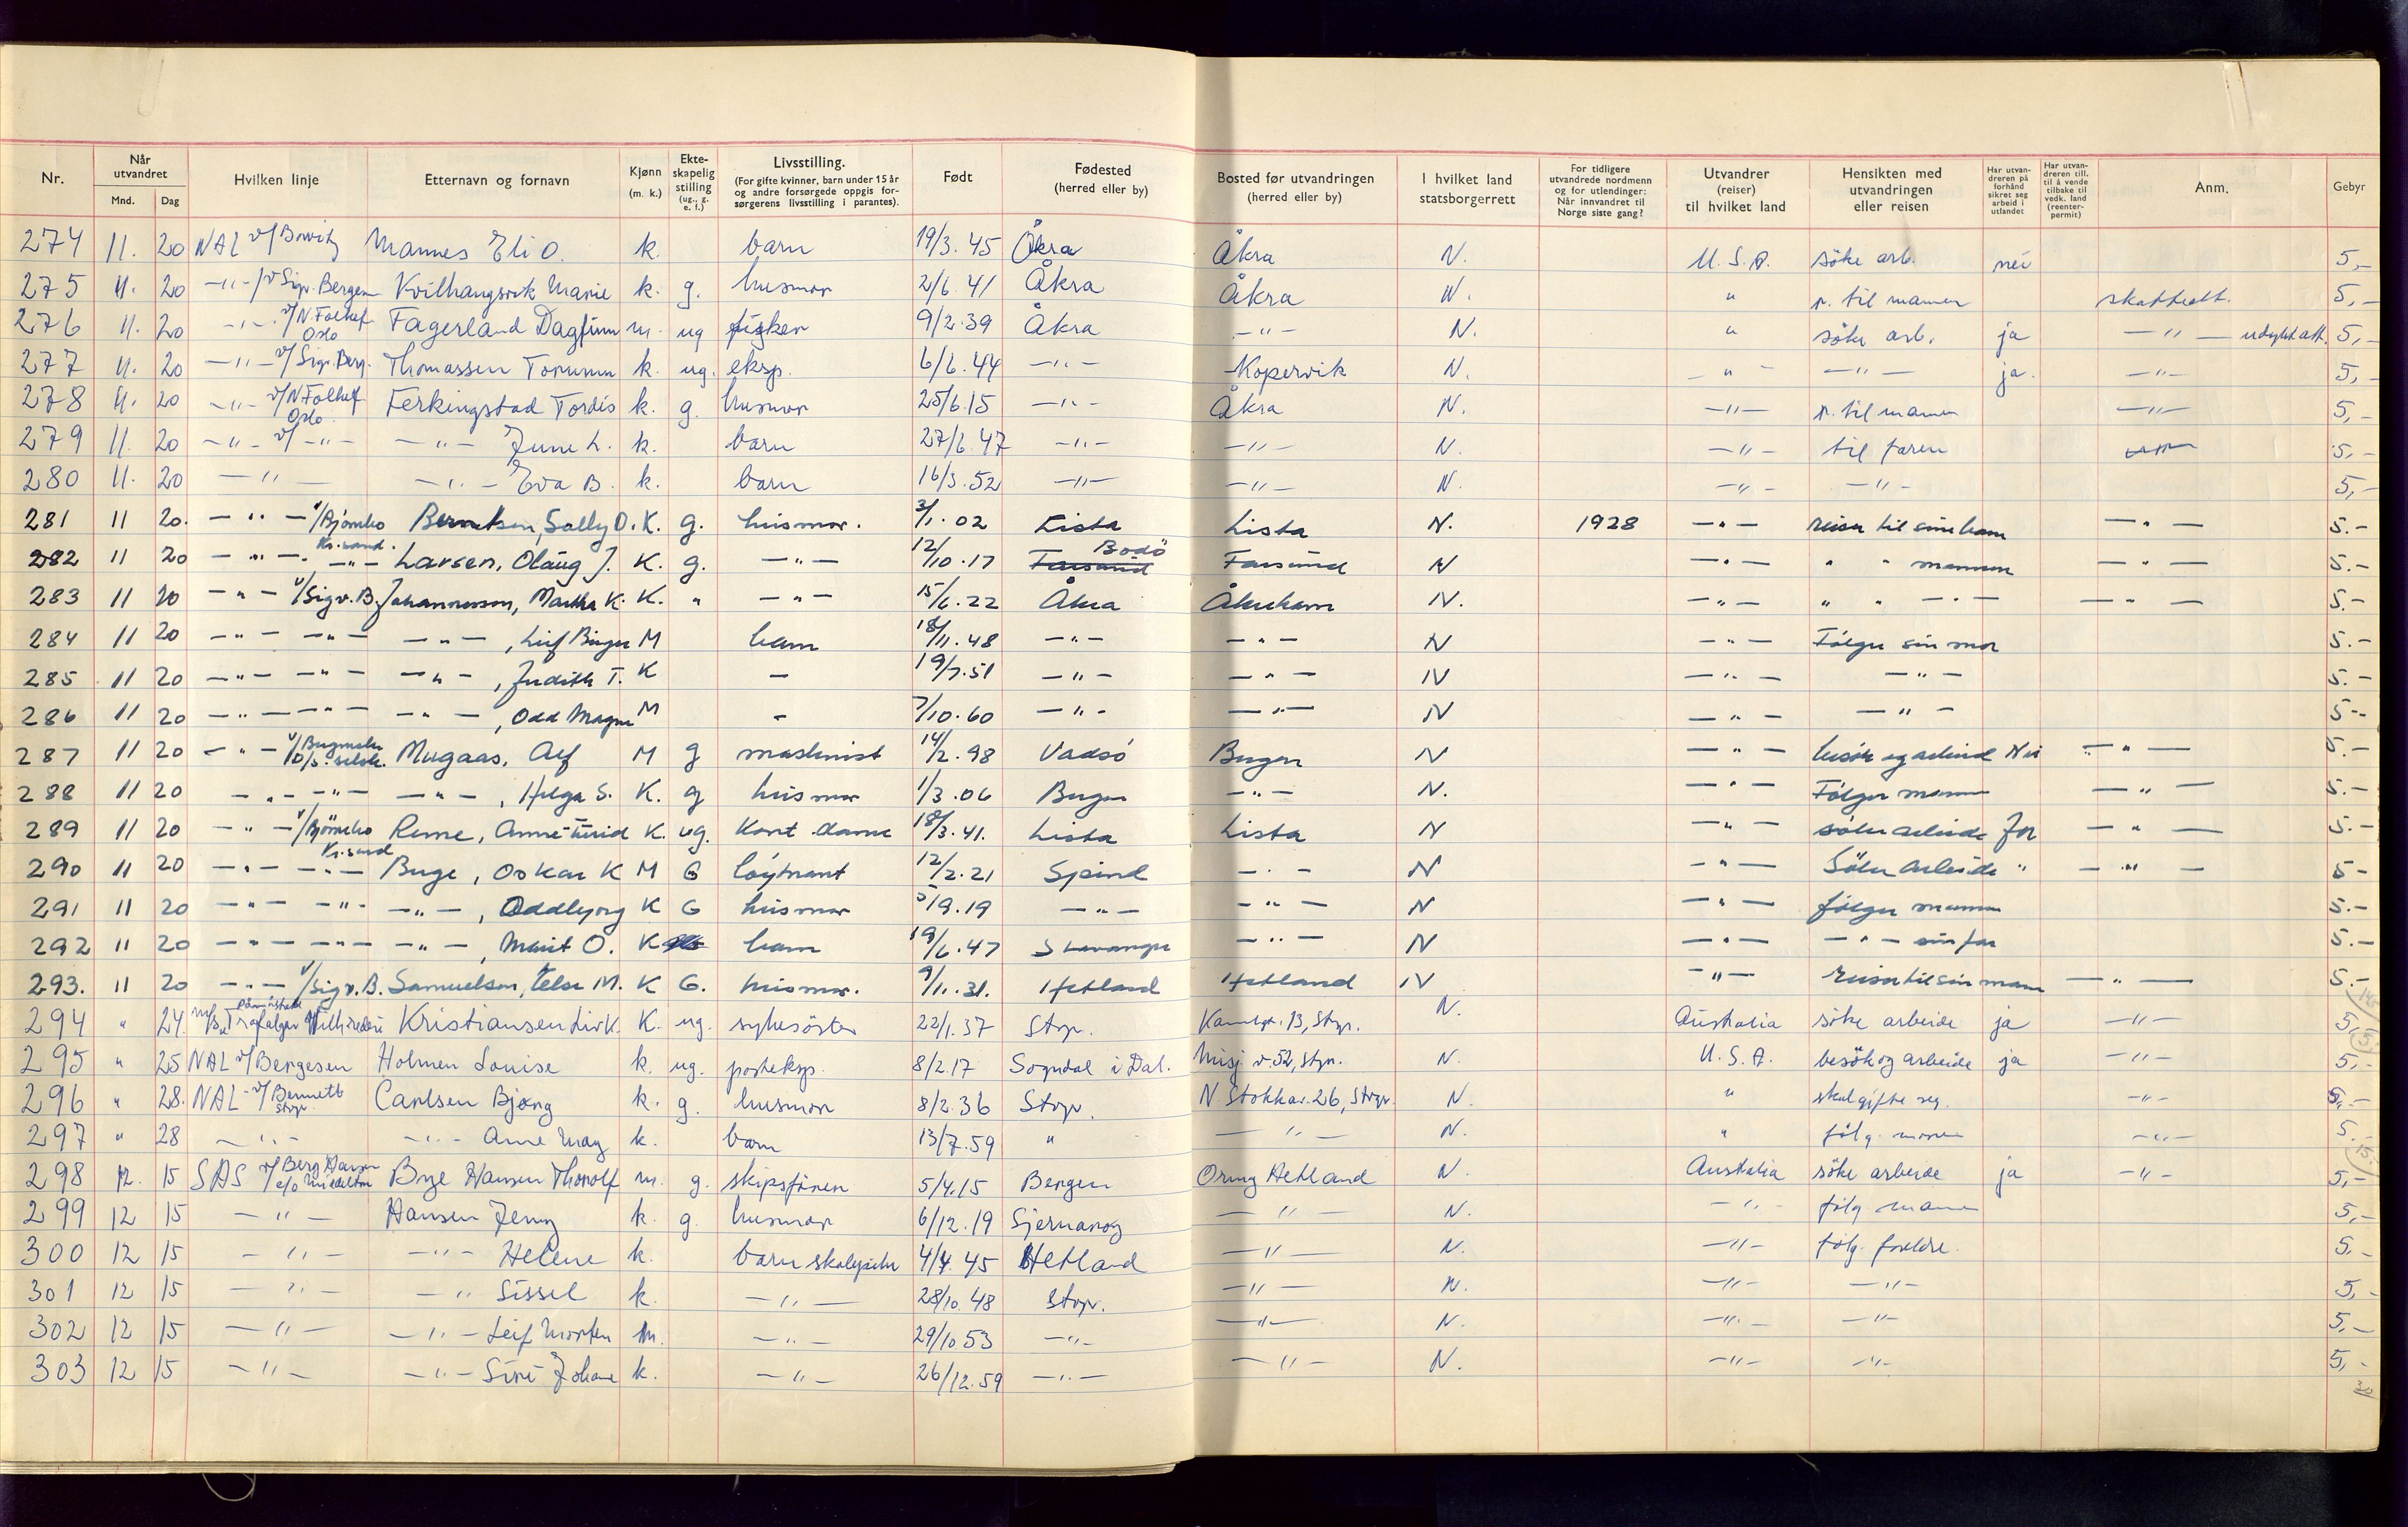 Nr. Når utvandret Mnd. Dag Hvilken linje Etternavn og fornavn Kjønn (m. k.) Ekteskapelig stilling (ug., g. e. f.) Livsstilling. (For gifte kvinner, barn under 15 år og andre forsørgede oppgis forsørgerens livsstilling i parantes). Født Fødested (herred eller by) Bosted før utvandringen (herred eller by) I hvilket land statsborgerrett For tidligere utvandrede nordmenn og for utlendinger: Når innvandret til Norge siste gang? Utvandrer (reiser) til hvilket land Hensikten med utvandringen eller reisen Har utvandreren på forhånd sikret seg arbeid i utlandet Har utvandreren till. til å vende tilbake til vedk. land (reenterpermit) Anm. Gebyr
274 11. 20 NAL v/ Mannes Eli O. k. barn 19/3.45 Åkra Åkra N. U.S.A. söke arb. nei 5,-
275 11. 20 -"- v/Sigv. Bergesen Kvilhaugsvik Marie k. g. husmor 2/6.41 Åkra Åkra N. " r. til mannen skatteatt. 5,-
276 11. 20 -"- v/N. Folkef Oslo Fagerland Dagfinn m. ug fisker 9/2.39 Åkra -"- N. " söke arb. ja -"- 5,-
277 11. 20 -"- v/Sigv. Berg. Thomassen Torunn k. ug. eksp. 6/6.44 -"- Kopervik N. -"- -"- ja. -"- 5,-
278 11. 20 -"- v/N Folkef Oslo Ferkingstad Tordis k. g. husmor 25/6.15 -"- Åkra N. -"- r. til mannen -"- 5,-
279 11. 20 -"- v/ -"- -"- June L. k. barn 27/6.47 -"- -"- N. -"- til faren 5,-
280 11. 20 -"- -"- Eva B. k. barn 16/3.52 -"- -"- N. -"- -"- 5,-
281 11 20. -"- v/Bjørnebo Berntsen, Sally O. K. g. husmor. 3/1.02 Lista Lista N. 1928 -"- reiser til sine barn -"- 5.-
282 11 20 -"- Kr.sand. -"- Larsen, Olaug J. K. g. -"- 12/10.17 Farsund Bodö Farsund N -"- " " mannen -"- 5.-
283 11 20 -"- v/Sigv. B. Johannessen, Martha K. K. " -"- 15/6.22 Åkra Åkrehamn N. -"- " " -"- -"- 5.-
284 11 20 -"- -"- -"- , Leif Birger M barn 18/11.48 -"- -"- N -"- Følger sin mor 5.-
285 11 20 -"- -"- -"- , Judith T. K - 19/7.51 -"- -"- N -"- -"- 5.-
286 11 20 -"- -"- -"- , Odd Magne M - 7/10.60 -"- -"- N -"- -"- 5.-
287 11 20 -"- v/Bergenske D/s. selsk. Mugaas, Alf M g maskinist 14/2.98 Vadsö Bergen N -"- besök og arbeid Nei -"- 5.-
288 11 20 -"- -"- -"- , Helga S. K. g husmor 1/3.06 Bergen -"- N. -"- Følger mannen -"- 5.-
289 11 20 -"- v/Bjørnebo Reme, Anne-Turid K. ug. Kont. dame 18/3.41. Lista Lista N -"- söker arbeide -"- 5.-
290 11 20 -"- Kr.sand -"- Buge, Oskar K M G løytnant 12/2.21 Spind -"- N -"- Söker arbeide " -"- 5-
291 11 20 -"- -"- -"- , Oddbjorg K G husmor 5/9.19 -"- -"- N -"- følger mannen 5.-
292 11 20 -"- -"- -"- , Marit O. K barn 19/6.47 Stavanger -"- N -"- -"- sin far 5.-
293. 11 20 -"- v/Sigv. B. Samuelsen, Else M. K G. husmor. 9/1.31. Hetland Hetland N -"- Reiser til sin mann -"- 5.-
294 " 24. Trafalgar Kristiansen Liv K. K. ug. sykesöster 22/1.37 Stvgr. 13, Stvgr. N. Australia söke arbeide ja -"- 5,-
295 " 25 NAL v/Bergesen Holmen Louise k. ug. posteksp. 8/2.17 Sogndal i Dal. Misj. v. 52, Stvgr. N. U.S.A. besök og arbeide ja -"- 5,-
296 " 28. NAL - v/Bennett stvgr Carlsen Bjørg k. g. husmor 8/2.36 Stvgr. N. Stokkav. 26, Stvgr. N. " skal gifte seg. -"- 5,-
297 " 28 -"- -"- Anne May k. barn 13/7.59 " -"- N. " fölg. moren -"- 5.-
298 12. 15 SAS v/Berg Hansen Brye Hansen Thorolf m. g. skipsfører 5/4.15 Bergen Hetland N. Australia söke arbeide ja -"- 5,-
299 12 15 -"- Hansen Jenny k. g. husmor 6/12.19 Sjernarøy -"- N. -"- fölg. mann 5,-
300 12 15 -"- -"- Helene k. barn skolepike 4/4.45 Hetland -"- N. -"- fölg. foreldre. 5,-
301 12 15 -"- -"- Sissel k. -"- 28/10.48 Stvgr. -"- N. -"- -"- 5,-
302 12 15 -"- -"- Leif Morten m. -"- 29/10.53 -"- -"- N. -"- -"- 5,-
303 12 15 -"- -"- Siri Johane k. -"- 26/12.59 -"- -"- N. -"- -"- 5,-
30